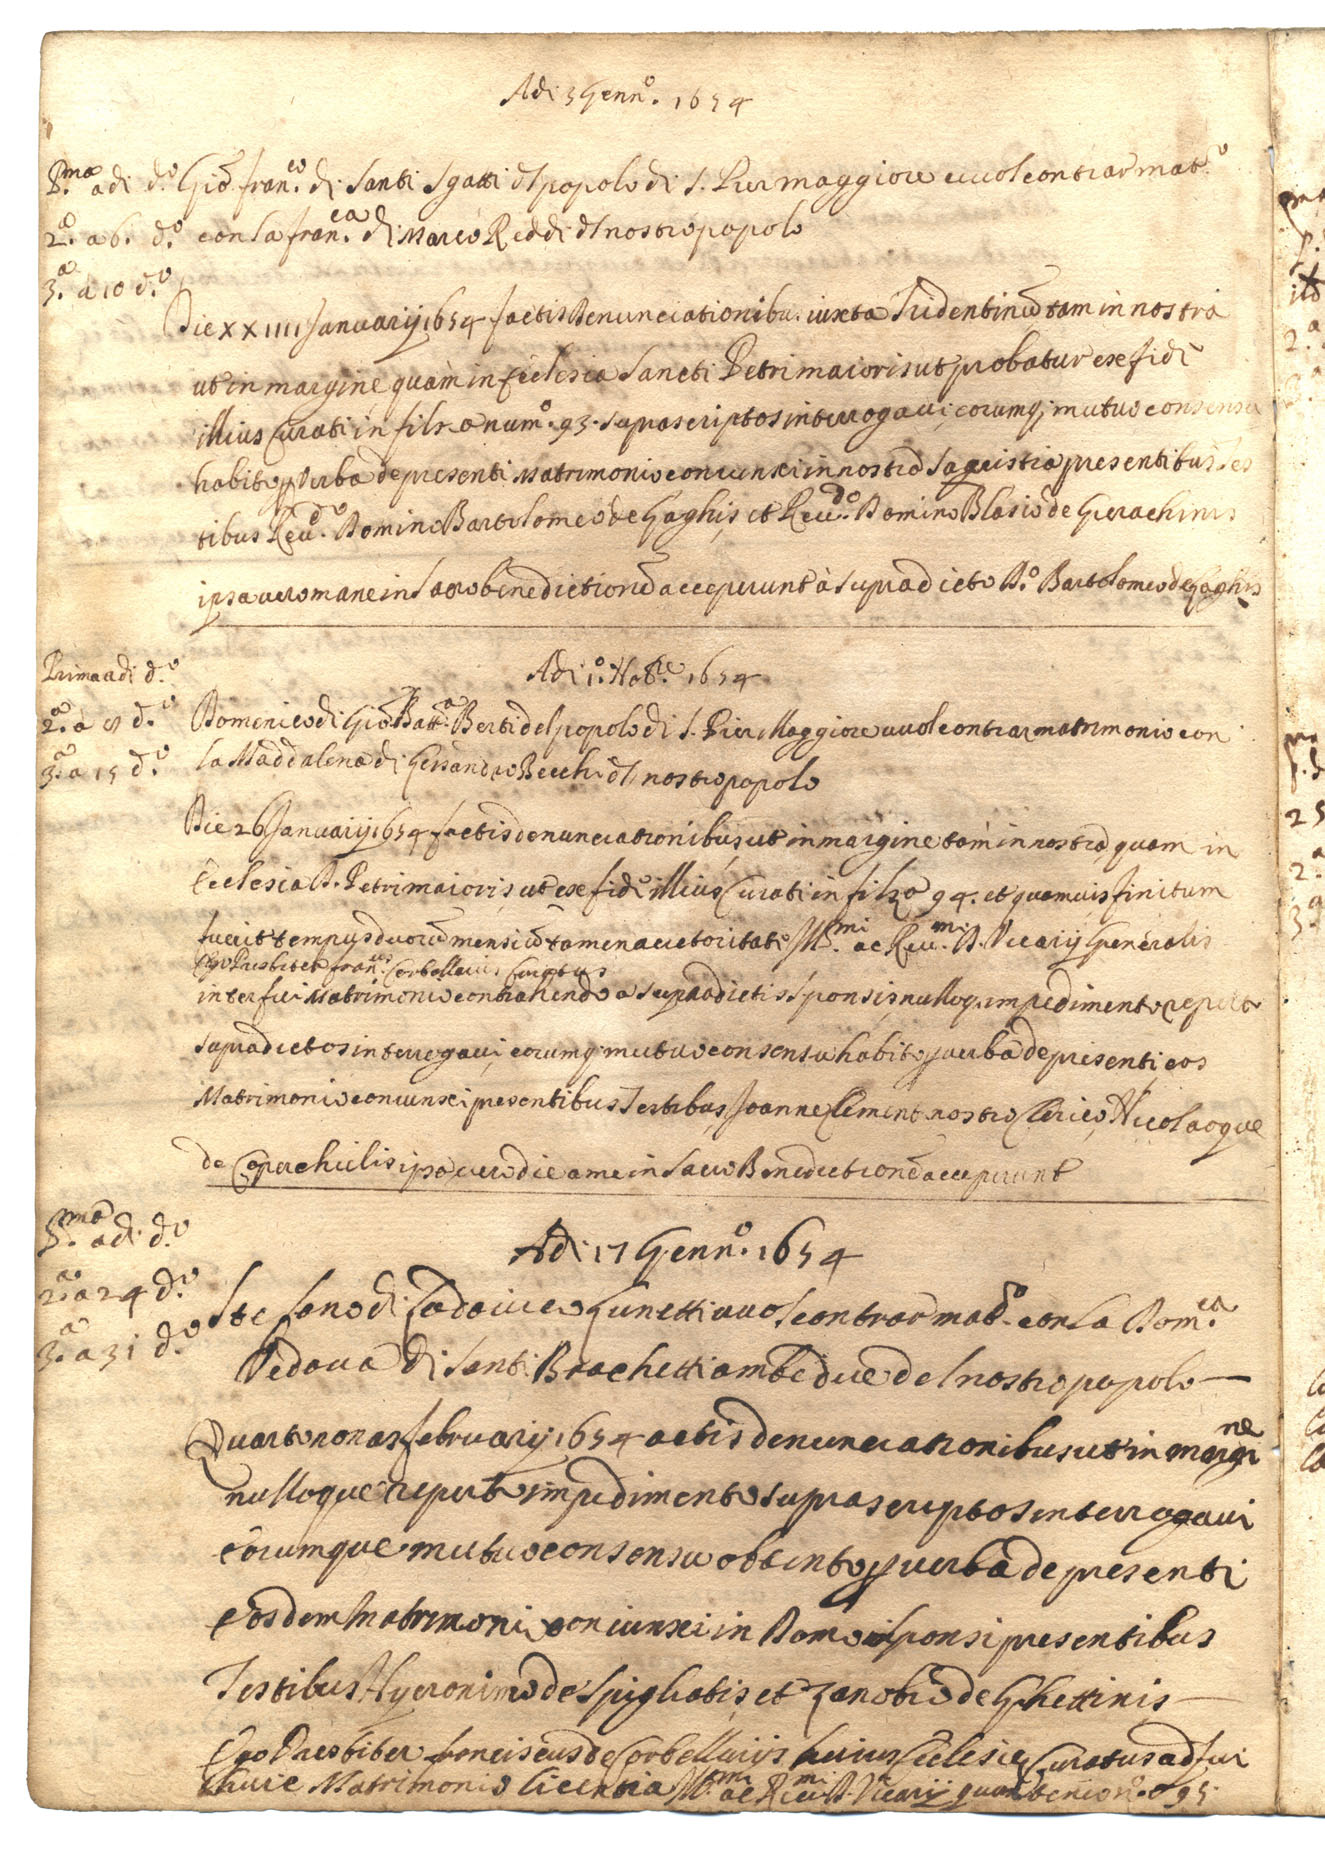 Adi 3 Genn.o 1654
P.ma adi d.o Giō fran.co di Santi Sgatti d popolo di S. Pier maggiore vuol contrar mat.o
2.a a 6. d.o con la fran.ca di Marco Reddi d nostro popolo
3.a a 10 d.o
Die XXIIII Januarij 1654 factis Denunciationibu. iuxta Tridentinū tam in nostra
ut in margine quam in Ecclesia Sancti Petri maioris ut probatur ex fide
illius Curati in filza num.o 93. suprascriptos interrogavi, eorumq; mutuo consensu
habito p verba de presenti Matrimonio coniunxi in nostra presentibus Tes
tibus Reu.do Domino Bartolomeo de Gaghis et Reu.do Domino Blasio de
ipsa vero mane in Sacro benedictionē acceperunt à supradicto D.o Bartolomeo de Gaghis
Prima adi d.o
Adi 1.o 1654
2.a a 8 d.o Domenico di Giō Batt.a Berti del popolo di S. Pier Maggiore vuol contrar matrimonio con
3.a a 15 d.o la Maddalena di Becchi d nostro popolo
Die 26 Januarij 1654 factis denunciationibus ut in margine tam in nostra, quam in
Ecclesia D. Petri maioris ut ex fide illius Curati in filza 94. et quamvis finitum
fuerit tempus duorū mensiū tamen auctoritate Ill.mi ac Reu.mi D. Vicarij Generalis
Ego Presbiter fran.cus Corbellaius Curatus
interfui Matrimonio contrahendo a supradictis Sponsis, nulloq. impedimento reperto
supradictos interrogavi, eorumq. mutuo consensu habito p verba de presenti eos
Matrimonio coniunxi presentibus Testibus, Joanne Clemente nostro Clerico, Nicolaoque
de ipsa vero die a me in Sacro Benedictionē acceperunt
P.ma adi d.o
Adi 17 Genn.o 1654
2.a a 24 d.o
3.a a 31 d.o
Stefano di Lodovico Gunetti vuol contrar mat.o con la Dom.ca
Vedova di Santi Brachetti ambedue del nostro popolo
Quarto nonas february 1654 actis denunciationibus ut in margi
ne
nulloque reperto impedimento suprascriptos interrogavi
eorumque mutuo consensu obtento p verba de presenti
eosdem Matrimonio coniunxi in Domo Sponsi presentibus
Testibus Hyeronimo de Spigliatis, et Zanobio de Ghettinis
Ego Presbiter franciscus de Corbellarijs huius Ecclesie Curatus adfui
huic Matrimonio licentia Ill.mi ac Reu.mi D. Vicarij 95.